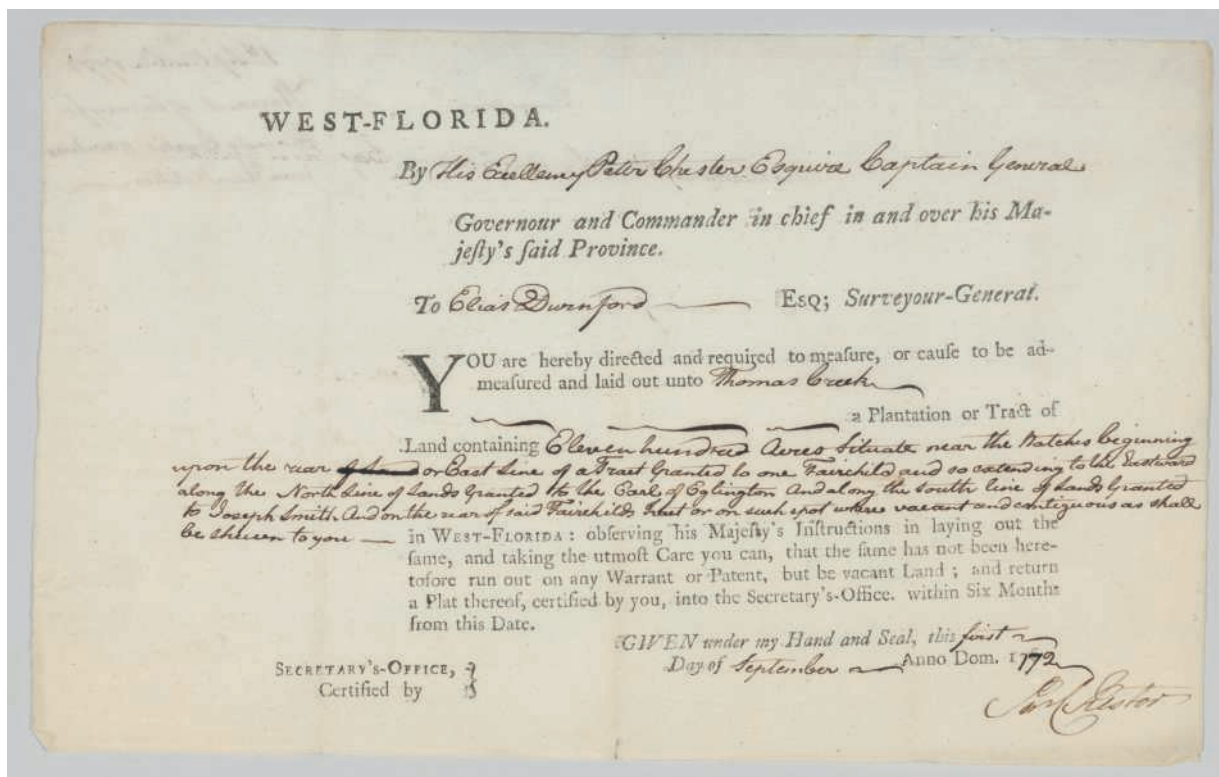 WEST-FLORIDA.
By His Excellency Peter Chester Esquire Captain General
Governour and Commander in chief in and over his Ma-
jeſty's ſaid Province.
To Elias Durnford ESQ; Surveyour-General.
YOU are hereby directed and required to meaſure, or cauſe to be ad-
meaſured and laid out unto Thomas Creek
a Plantation or Tract of
Land containing Eleven hundred Acres Situate near the Natches beginning
upon the rear or East Line of a Tract Granted to one Fairchild and so extending to the Eastward
along the North Line of Lands Granted to the Earl of Eglington And along the South line of Lands Granted
to Joseph Smith And on the rear of said Fairchilds Tract or on such spot where vacant and contiguous as shall
be shewn to you — in WEST-FLORIDA: obſerving his Majeſty's Inſtructions in laying out the
ſame, and taking the utmoſt Care you can, that the ſame has not been here-
tofore run out on any Warrant or Patent, but be vacant Land; and return
a Plat thereof, certified by you, into the Secretary's-Office. within Six Months
from this Date.
GIVEN under my Hand and Seal, this first
Day of September Anno Dom. 1772
SECRETARY'S-OFFICE, }
Certified by }
Chester